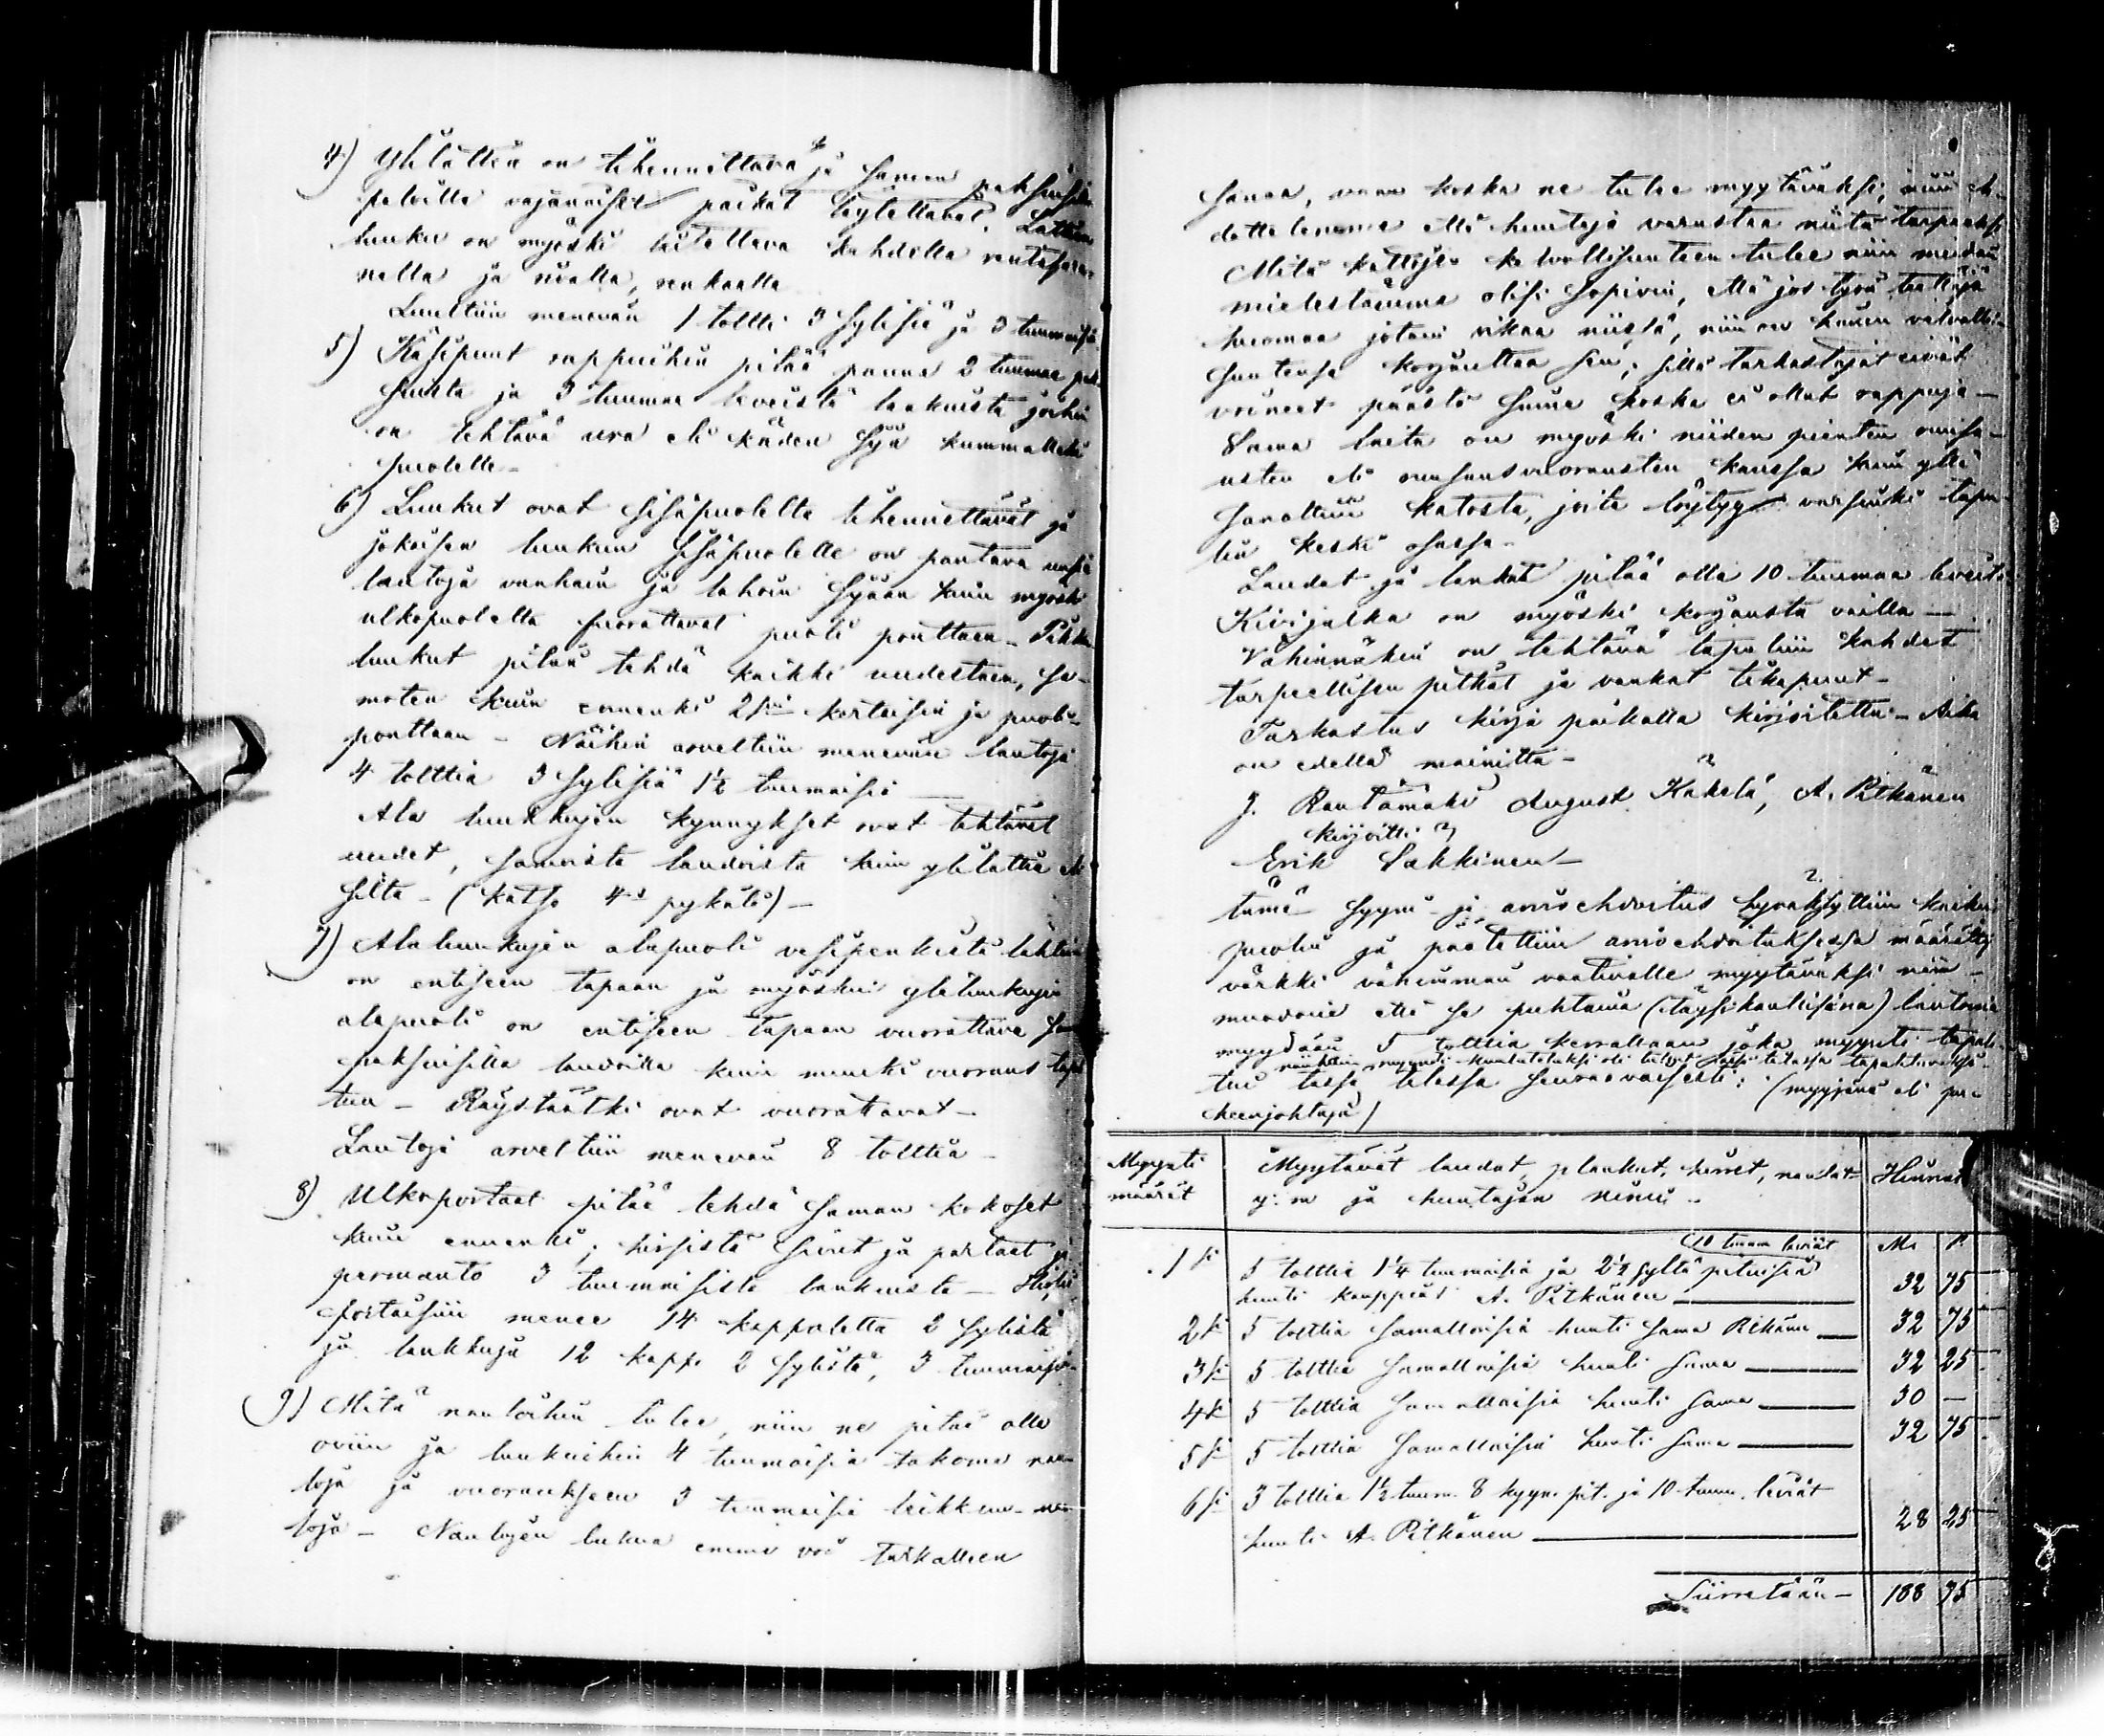 4) Ylilattia on tihennettävä ja saman paksuisilla
palvilla vajanaiset paikat täytettävät. Lattian
luukku on myöski laitettava kahdella rautasara-
nalla ja uualla, renkaalla
Luultiin menevän 1 toltti 3 sylisiä ja 3 tuumaisia
5) Käsipuut rappuihin pitää panna 2 tuumaa pak-
suista ja 3 tuumaa leveistä lankuista joihin
on tehtävä ura eli käden syä kummalleki
puolelle-
6) Luukut ovat sisäpuolelta tihennettävät ja
jokaisen luukun sisäpuolelle on pantava uusia
lautoja vanhain ja lahoin syään kuin myöski
ulkopuolelta vuorattavat puoli ponttaan-
luukut pitää tehdä kaikki uudestaan, sa-
moten kuin ennenki 2si kertaisia ja puoli-
ponttaan - Näihin arveltiin menevän lautoja
4 tolttia 3 sylisiä 1½ tuumaisia
Ala luukkujen kynnykset ovat tehtävät
uudet, samoista laudoista kuin ylilattia eli
silta - (katso 4ä pykälä) -
7) Alaluukujen alapuoli vesipenkistä lähtien
on entiseen tapaan ja myöskin yliluukujen
alapuoli on entiseen tapaan vuorattava sa-
paksuisilla laudoilla kuin muuki vuoraus tapu-
lin - Räystäätki ovat vuorattavat-
Lautoja arveltiin menevän 8 tolttia -
8) Ulkoportaat pitää tehdä saman kokoset
kuin ennenki; hirsistä sivut ja portaat ja
permanto 3 tuumaisista lankuista -
portaisiin menee 14 kappaletta 2 sylistä
ja lankkuja 12 kapp. 2 sylistä, 3 tuumaisia-
9) Mitä nauloihin tulee, niin ne pitää olla
oviin ja luukuihin 4 tuumaisia takoma nau-
loja ja vuoraukseen 3 tuumaisia leikkuu- nau-
loja - Naulojen lukua emme voi tarkalleen
sanoa, vaan koska ne tulee myytäväksi, niin eh-
dottelemme että huutaja varustaa niitä tarpeeksi
Mitä kattojen kelvollisuuteen tulee niin meidän
mielestämme olisi sopivin, että jos työn teettäjä
huomaa jotain vikaa niissä, niin on hänen velvolli-
suutensa korjauttaa sen; sillä tarkastajat eivät
voineet päästä sinne koska ei ollut rappuja -
Sama laita on myöski niiden pienten
usten eli vuorausten kanssa kuin yllä
sanottiin katosta, joita löytyy varsinki tapu-
lin keski osassa -
Laudat ja lankut pitää olla 10 tuumaa leveitä
Kivijalka on myöski korjausta vailla -
Vähinnäkin on tehtävä tapuliin kahdet
tarpeellisen pitkät ja vankat tikapuut -
Tarkastus kirja paikalla kirjoitettu - Aika
on edellä mainittu -
J. Rautamäki August Kähelä, A. Pitkänen
kirjoitti
Erik Lakkinen -
tämä syyni- ja arvio ehdoitus hyväksyttiin kaikin
puolin ja päätettiin arvio ehdoituksessa määrätty
värkki vähimmän vaativalle myytäväksi niin-
muodoin että se puhtaina (täysikantisina) lautoina
myydään 5 tolttia kerrallaan joka myynti tapah-
tui tässä tilassa seuraavaisesti: (myyjänä oli pu-
heenjohtaja)
Myynti määrät | Myytävät laudat, plankut, hirret, naulat y. m ja huutajan nimi - | Hinnat
10 tuum leviät | M. | P.
1si | 5 tolttia 1¼ tuumaisia ja 2½ syltä pituisia
huuti kauppias A. Pitkänen | 32 | 75
2si | 5 tolttia samallaisia huuti sama Pitkänen | 32 | 75
3si | 5 tolttia samallaisia huuti sama | 32 | 25
4si | 5 tolttia samallaisia huuti sama | 30 | -
5si | 5 tolttia samallaisia huuti sama | 32 | 75
6si | 3 tolttia 1½ tuum. 8 kyyn. pit. ja 10 tuum. leviät
huuti A. Pitkänen | 28 | 25
Siirretään - | 188 | 75